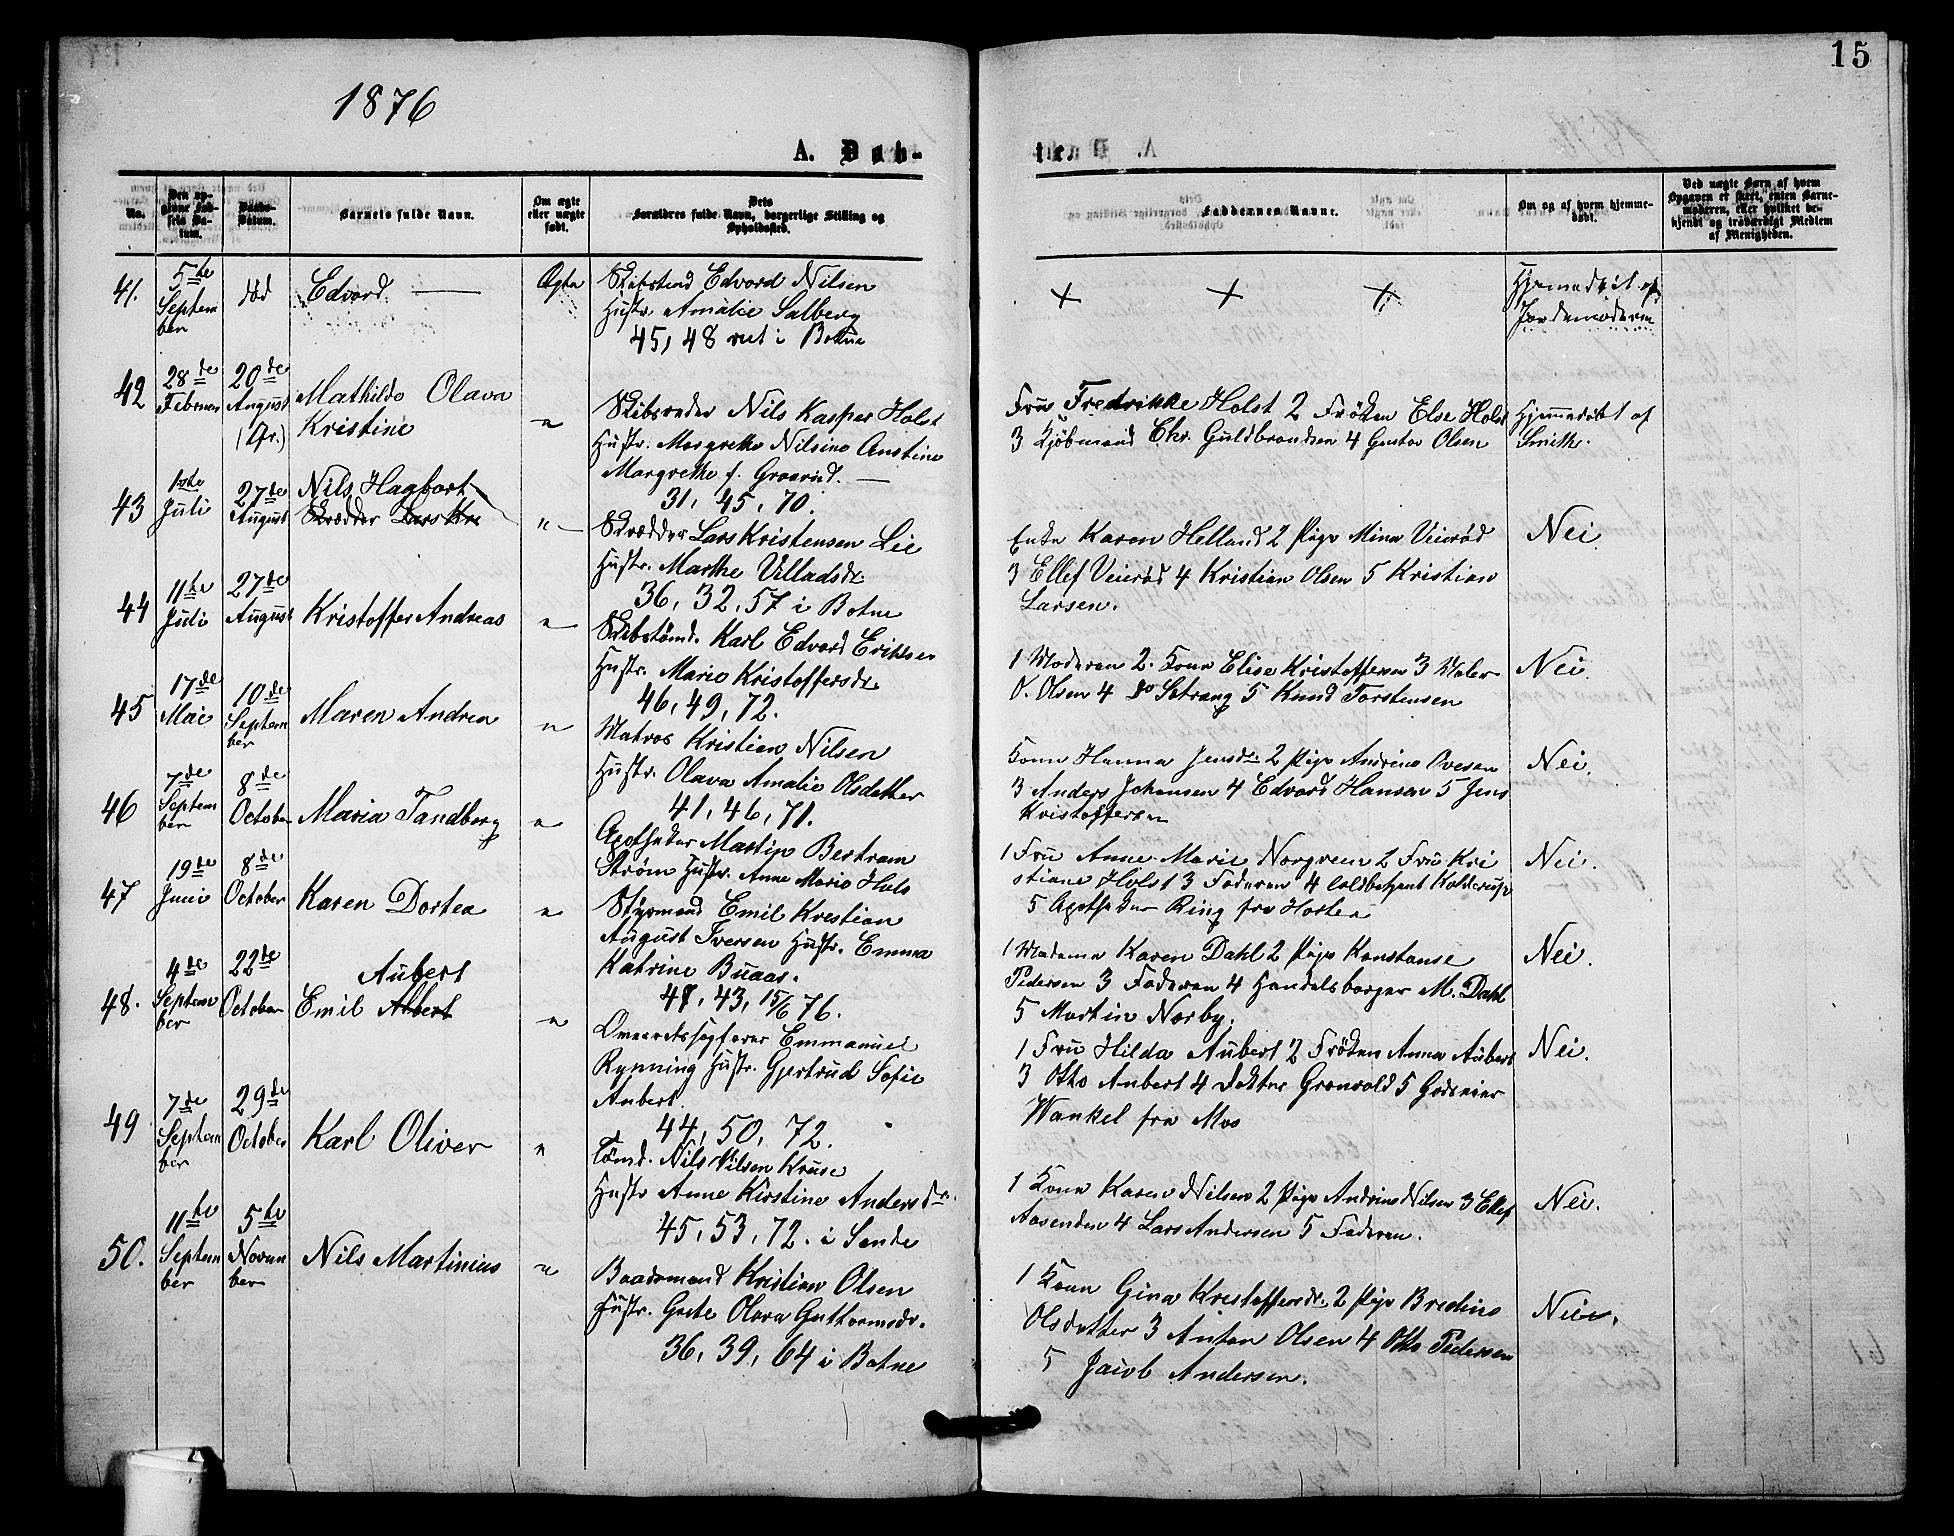 15
1876
A. Døb-
te.
No.
Den opgivne Fødsels Datum.
Daabs-Datum.
Barnets fulde Navn.
Om ægte eller uægte født.
Dets Forældres fulde Navn, borgerlige Stilling og Opholdssted.
Faddernes Navne.
Om og af hvem hjemmedøbt.
Ved uægte Børn af hvem Opgaven er skeet, enten Barnemoderen, eller hvilket bekjendt og troværdigt Medlem af Menigheden.
41.
5te September
død
Edvard —
Ægte
Skibstmd Edvard Nilsen
Hustr. Amalie Salberg
45, 48 viet i Botne
+ + +
Hjemmedøbt af
Jordemoderen
42
28de Februar
20de August
(Gr.)
Mathilde Olava
Kristine
"
Skibsreder Nils Kasper Holst
Hustr. Margrethe Nilsine Austine
Margrethe f. Graarud. —
31, 45, 70.
Fru Fredrikke Holst 2 Frøken Else Holst
3 Kjøbmand Chr. Guldbrandsen 4 Gustav Olsen
Hjemmedøbt af
Smith.
43
1ste Juli
27de August
Nils Hagbart
Skrædder Lars Kr
"
Skrædder Lars Kristensen Lie
Hustr. Marthe Villadsdr.
36, 32, 57 i Botne
Enke Karen Helland 2 Pige Mina Veierød
3 Ellef Veierød 4 Kristian Olsen 5 Kristian
Larsen.
Nei.
44
11te Juli
27de August
Kristoffer Andreas
"
Skibstømd. Karl Edvard Eriksen
Hustr. Marie Kristoffersdr.
46, 49, 72.
1 Moderen 2. Kone Elise Kristoffersen 3 Maler
O. Olsen 4 Do Setrang 5 Knud Torstensen
Nei.
45
17de Mai
10de September
Maren Andrea
"
Matros Kristian Nilsen
Hustr. Olava Amalie Olsdatter
41, 46, 71.
Kone Hanna Jensdr. 2 Pige Andrine Ovesen
3 Anders Johansen 4 Edvard Hansen 5 Jens
Kristoffersen
Nei.
46
7de September
8de October
Maria Tandberg
"
Apotheker Martin Bertram
Strøm Hustr. Anne Marie Hols
1 Fru Anne Marie Norgren 2 Fru Kri
stiane Holst 3 Faderen 4 Toldbetjent Kolderup
5 Apotheker Ring fra Horten
Nei.
47
19de Juni
8de October
Karen Dortea
"
Styrmand Emil Krestian
August Iversen Hustr. Emma
Katrine Buaas.
47, 43, 15/6 76.
1 Madame Karen Dahl 2 Pige Konstanse
Pedersen 3 Faderen 4 Handelsborger M. Dahl
5 Martin Norby.
Nei.
48.
4de September
22de October
Aubert
Emil Albert
"
Overretssagfører Emmanuel
Rynning Hustr. Gjertrud Sofie
Aubert.
44, 50, 72.
1 Fru Hilda Aubert 2 Frøken Anna Aubert
3 Otto Aubert 4 Doktor Grønvold 5 Godseier
Wankel fra Mos
Nei.
49
7de September
29de October
Karl Oliver
"
Tømd. Nils Nilsen Kruse
Hustr Anne Kirstine Andersdr.
45, 53, 72. i Sande
1 Kone Karen Nilsen 2 Pige Andrine Nilsen 3 Ellef
Aasenden 4 Lars Andersen 5 Faderen.
Nei.
50.
11te September
5te November
Nils Martinius
"
Baadsmand Kristian Olsen
Hustr. Grete Olava Guttormsdr.
36, 39, 64 i Botne
1 Kone Gina Kristoffersdr. 2 Pige Bredine
Olsdatter 3 Anton Olsen 4 Otto Pedersen
5 Jacob Andersen.
Nei.